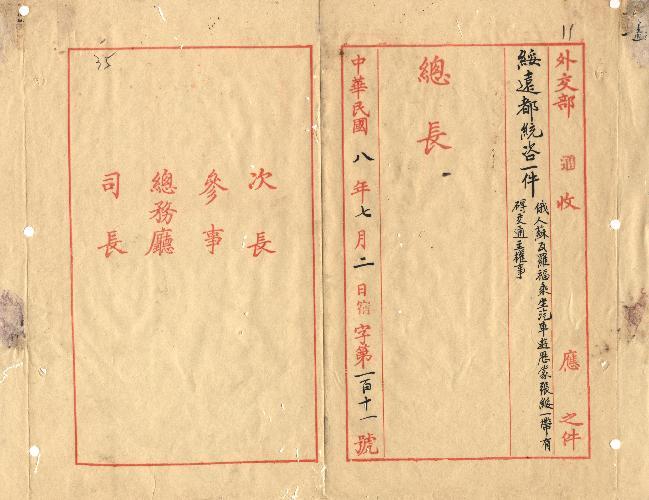 11
外交部 收 應 之件
綏遠都統咨一件
俄人蘇瓦羅福乘坐汽車遊歷蒙張綏一帶有
碍交通主權事
總長
中華民國八年七月二日 字第一百十一號
次長
參事
總務廳
司長
35